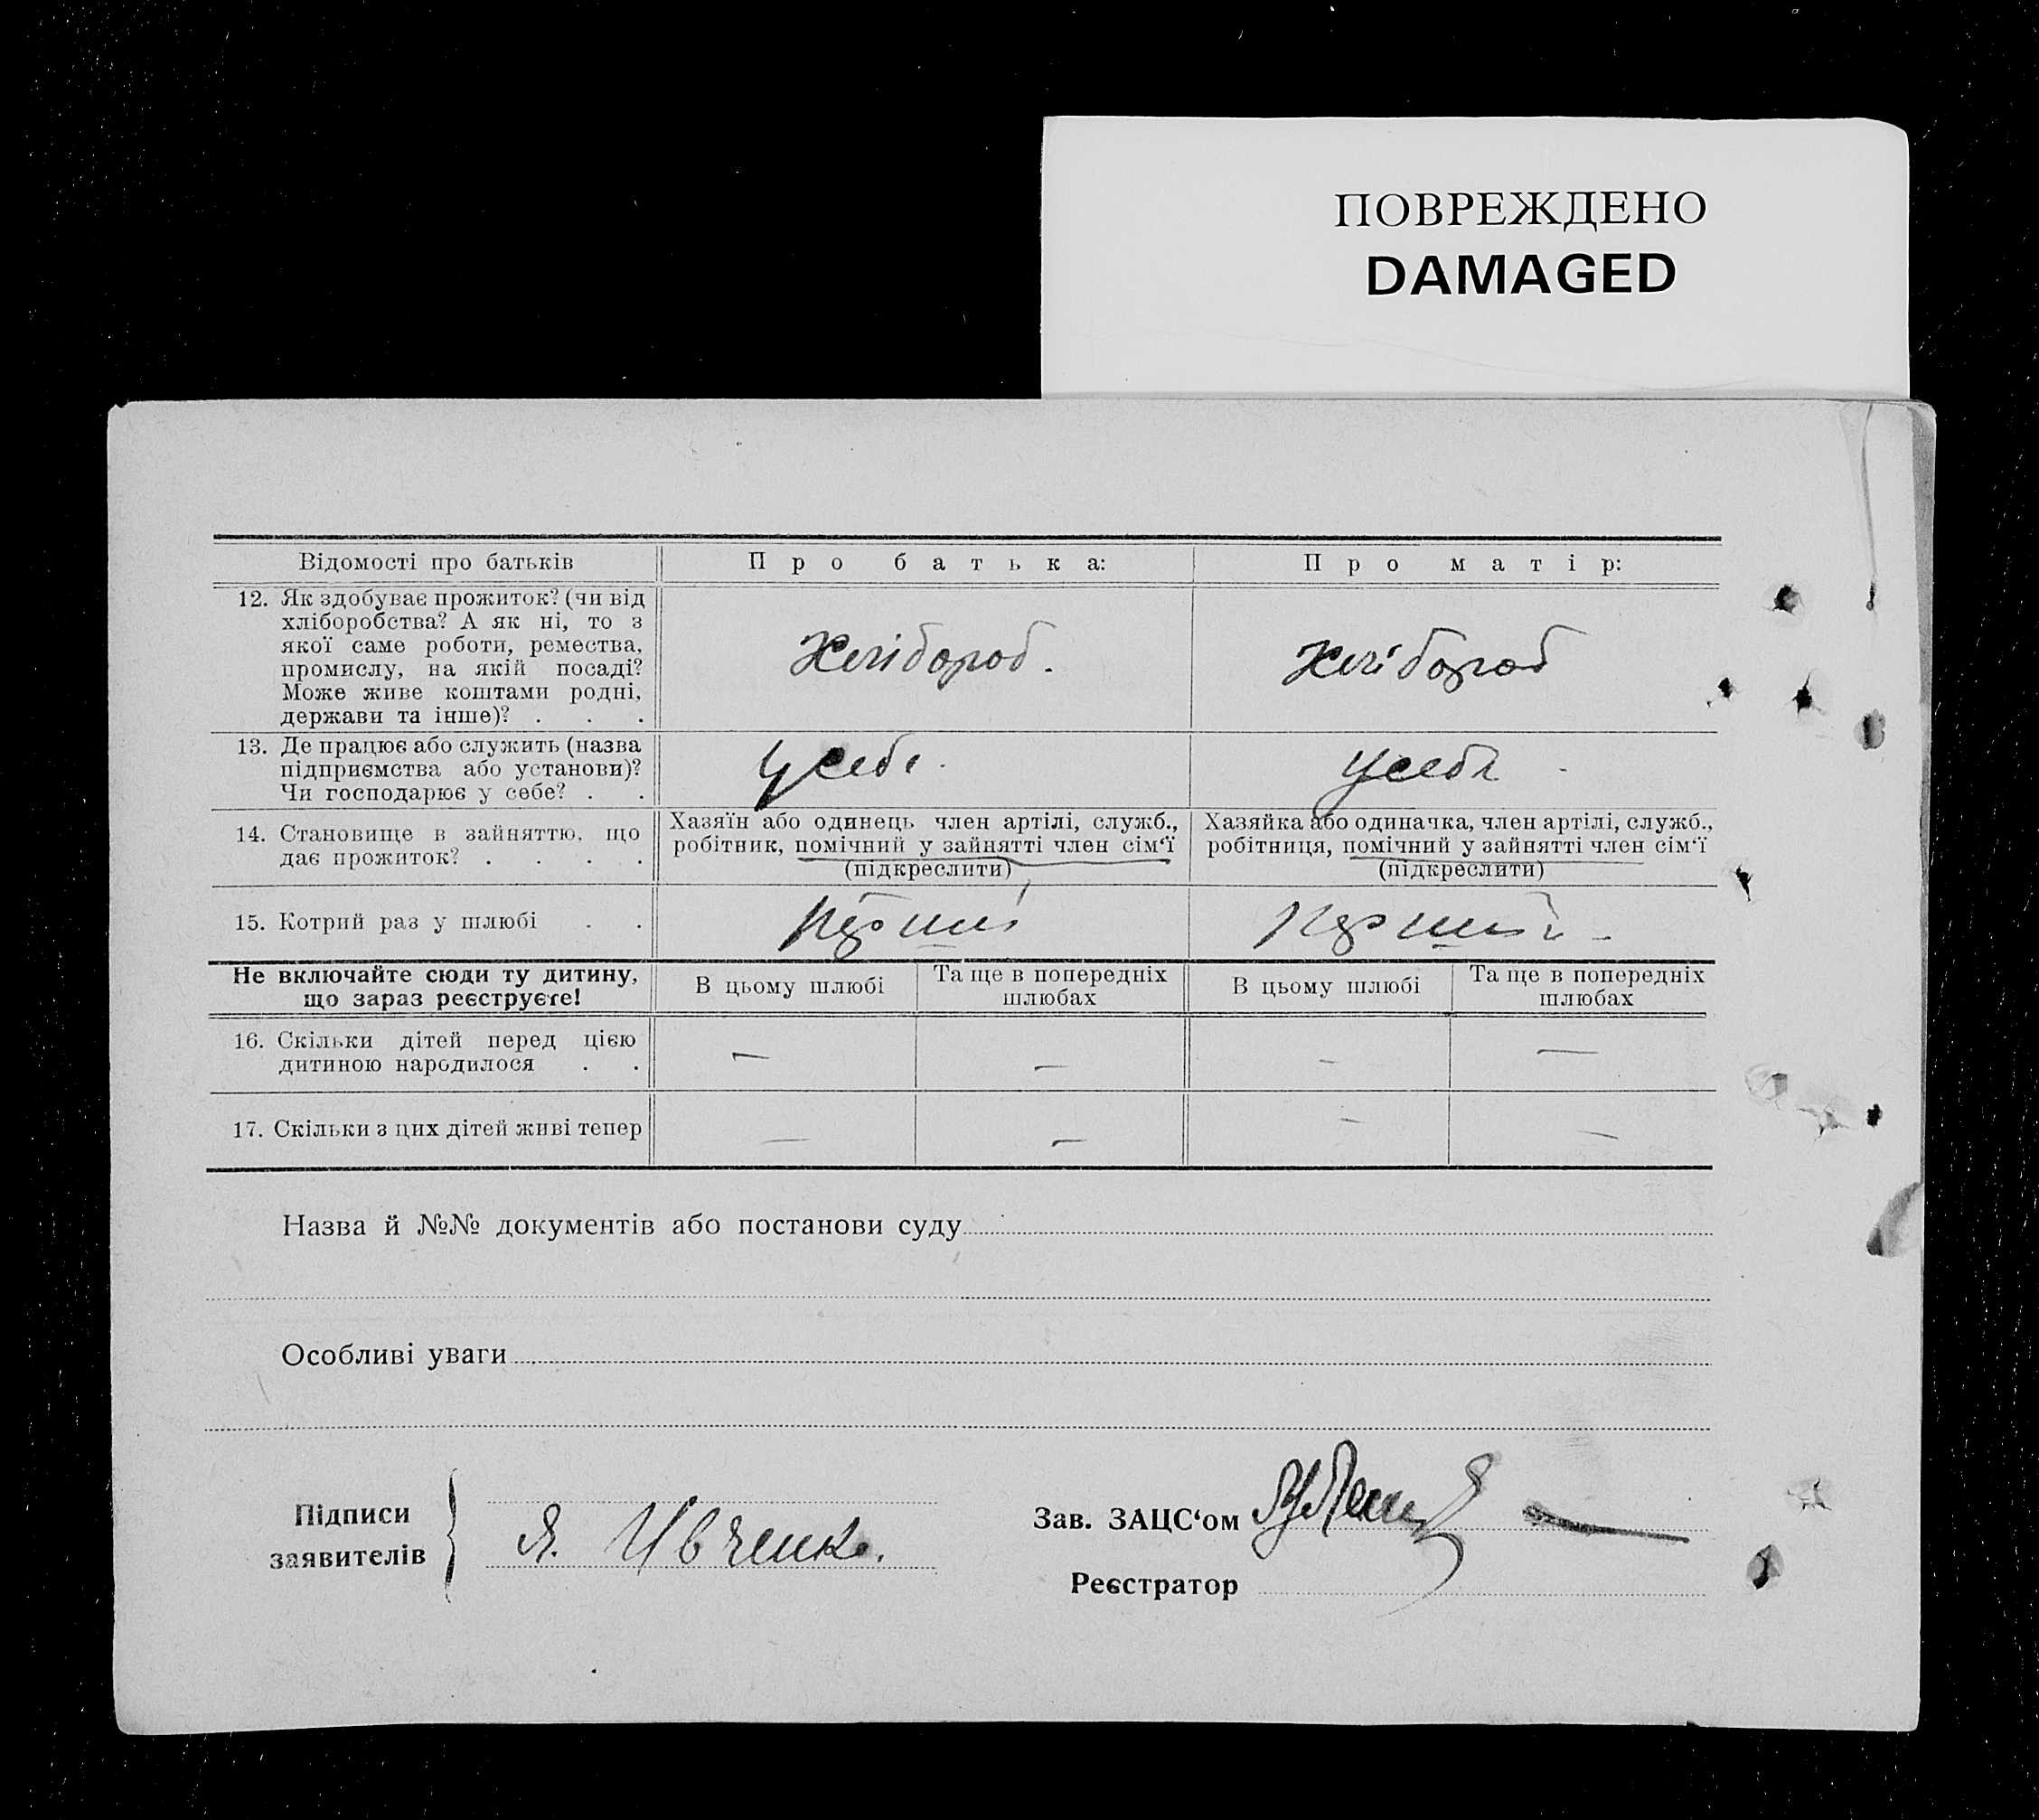 ПОВРЕЖДЕНО
DAMAGED
Відомості про батьків
Про батька:
Про матір:
12. Як здобуває прожиток? (чи від
хліборобства? А як ні, то з
якої саме роботи, ремества,
промислу, на якій посаді?
Може живе коштами родні,
держави та інше)? . . .
Хлібороб.
Хлібороб
13. Де працює або служить (назва
підприємства або установи)?
Чи господарює у себе? . .
У себе.
У себе
14. Становище в зайняттю, що
дає прожиток? . . . .
Хазяїн або одинець член артілі, служб.,
робітник, помічний у зайнятті член сім‘ї
(підкреслити)
Хазяйка або одиначка, член артілі, служб.,
робітниця, помічний у зайнятті член сім‘ї
(підкреслити)
15. Котрий раз у шлюбі . .
Перший
Перший -
Не включайте сюди ту дитину,
що зараз реєструєте!
В цьому шлюбі
Та ще в попередніх
шлюбах
В цьому шлюбі
Та ще в попередніх
шлюбах
16. Скільки дітей перед цією
дитиною народилося . .
— — — —
17. Скільки з цих дітей живі тепер
— — — —
Назва й №№ документів або постанови суду
Особливі уваги
Підписи
заявителів
Я. Ивченко.
Зав. ЗАЦС‘ом
Реєстратор